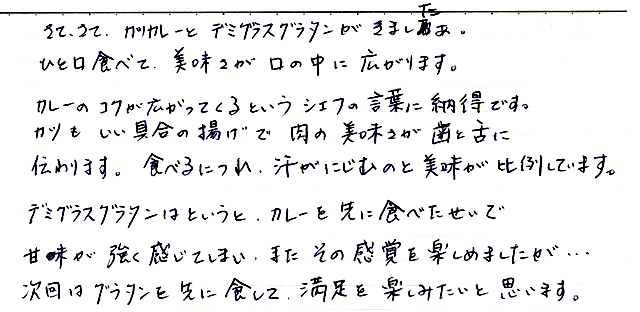 さて、さて、カツカレーと デミグラスグラタンが きました。
ひと口食べて、美味さが 口の中に 広がります。
カレーの コクが広がってくるという シェフの言葉に 納得です。
カツも いい具合の揚げで 肉の 美味さが 歯と舌に
伝わります。 食べるにつれ、汗がにじむのと 美味が 比例しています。
デミグラスグラタンはというと、カレーを 先に 食べたせいで
甘味が 強く 感じてしまい、また その感覚を 楽しめましたが…
次回は グラタンを 先に 食して、満足を 楽しみたいと 思います。